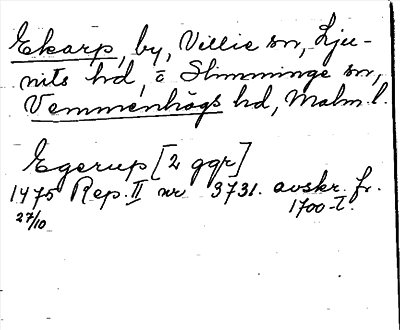 Ekarp, by, Villie sn, Lju-
nits hd, o Slimminge sn,
Vemmenhögs hd, Malm. l.
Egerup [2 ggr]
1475 Rep. II nr 3731. avskr. fr.
27/10 1700-t.